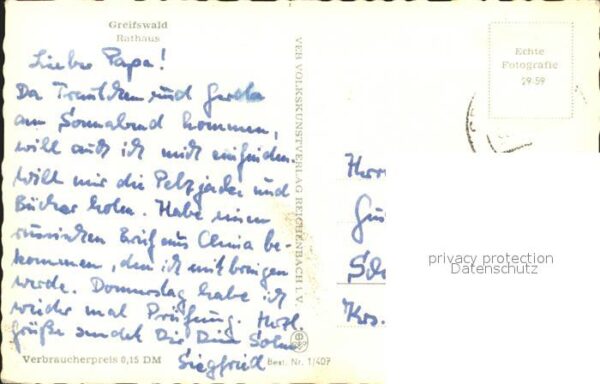 Greifswald
Rathaus
Lieber Papa!
Da Trautchen und Gerda
am Sonnabend kommen,
will auch ich mich einfinden.
Will mir die Pelzjacke und
Bücher holen. Habe einen
russischen Brief aus China be-
kommen, den ich mitbringen
werde. Donnerstag habe ich
wieder mal Prüfung. Herzl.
Grüße sendet Dir Dein Sohn
Siegfried
Verbraucherpreis 0,15 DM
Best. Nr. 1/407
VEB VOLKSKUNSTVERLAG REICHENBACH I. V.
Echte
Fotografie
29 59
Herrn
Sch
Krs.
privacy protection
Datenschutz